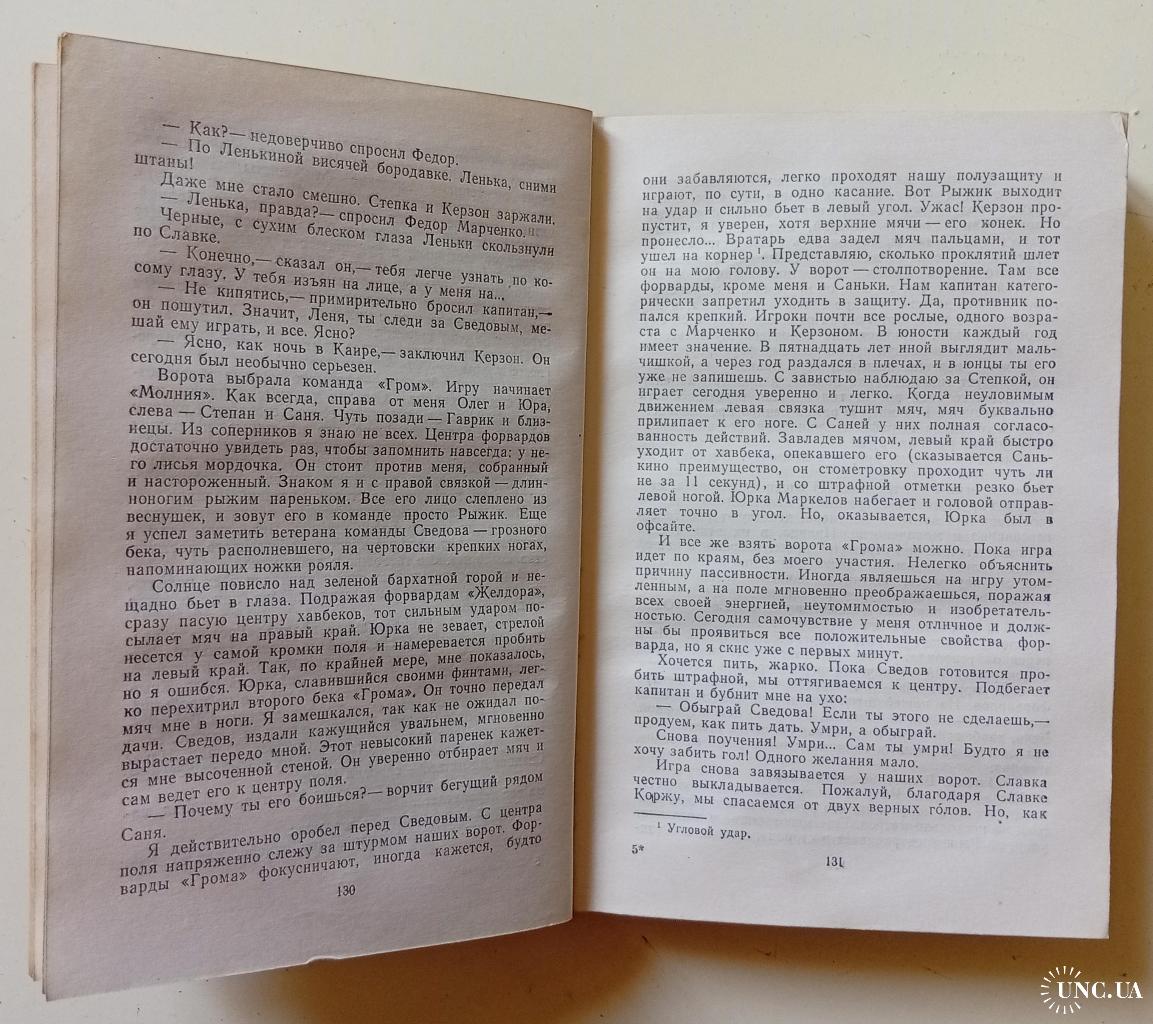 — Как?— недоверчиво спросил Федор.
— По Ленькиной висячей бородавке. Ленька, сними
штаны!
Даже мне стало смешно. Степка и Керзон заржали.
— Ленька, правда?— спросил Федор Марченко.
Черные, с сухим блеском глаза Леньки скользнули
по Славке.
— Конечно,— сказал он,— тебя легче узнать по ко-
сому глазу. У тебя изъян на лице, а у меня на...
— Не кипятись,— примирительно бросил капитан,—
он пошутил. Значит, Леня, ты следи за Сведовым, ме-
шай ему играть, и все. Ясно?
— Ясно, как ночь в Каире,— заключил Керзон. Он
сегодня был необычно серьезен.
Ворота выбрала команда «Гром». Игру начинает
«Молния». Как всегда, справа от меня Олег и Юра,
слева — Степан и Саня. Чуть позади — Гаврик и близ-
нецы. Из соперников я знаю не всех. Центра форвардов
достаточно увидеть раз, чтобы запомнить навсегда: у не-
го лисья мордочка. Он стоит против меня, собранный
и настороженный. Знаком я и с правой связкой — длин-
ноногим рыжим пареньком. Все его лицо слеплено из
веснушек, и зовут его в команде просто Рыжик. Еще
я успел заметить ветерана команды Сведова — грозного
бека, чуть располневшего, на чертовски крепких ногах,
напоминающих ножки рояля.
Солнце повисло над зеленой бархатной горой и не-
щадно бьет в глаза. Подражая форвардам «Желдора»,
сразу пасую центру хавбеков, тот сильным ударом по-
сылает мяч на правый край. Юрка не зевает, стрелой
несется у самой кромки поля и намеревается пробить
на левый край. Так, по крайней мере, мне показалось,
но я ошибся. Юрка, славившийся своими финтами, лег-
ко перехитрил второго бека «Грома». Он точно передал
мяч мне в ноги. Я замешкался, так как не ожидал по-
дачи. Сведов, издали кажущийся увальнем, мгновенно
вырастает передо мной. Этот невысокий паренек кажет-
ся мне высоченной стеной. Он уверенно отбирает мяч и
сам ведет его к центру поля.
— Почему ты его боишься?— ворчит бегущий рядом
Саня.
Я действительно оробел перед Сведовым. С центра
поля напряженно слежу за штурмом наших ворот. Фор-
варды «Грома» фокусничают, иногда кажется, будто
130
они забавляются, легко проходят нашу полузащиту и
играют, по сути, в одно касание. Вот Рыжик выходит
на удар и сильно бьет в левый угол. Ужас! Керзон про-
пустит, я уверен, хотя верхние мячи — его конек. Но
пронесло... Вратарь едва задел мяч пальцами, и тот
ушел на корнер ¹. Представляю, сколько проклятий шлет
он на мою голову. У ворот — столпотворение. Там все
форварды, кроме меня и Саньки. Нам капитан катего-
рически запретил уходить в защиту. Да, противник по-
пался крепкий. Игроки почти все рослые, одного возра-
ста с Марченко и Керзоном. В юности каждый год
имеет значение. В пятнадцать лет иной выглядит маль-
чишкой, а через год раздался в плечах, и в юнцы ты его
уже не запишешь. С завистью наблюдаю за Степкой, он
играет сегодня уверенно и легко. Когда неуловимым
движением левая связка тушит мяч, мяч буквально
прилипает к его ноге. С Саней у них полная согласо-
ванность действий. Завладев мячом, левый край быстро
уходит от хавбека, опекавшего его (сказывается Сань-
кино преимущество, он стометровку проходит чуть ли
не за 11 секунд), и со штрафной отметки резко бьет
левой ногой. Юрка Маркелов набегает и головой отправ-
ляет точно в угол. Но, оказывается, Юрка был в
офсайте.
И все же взять ворота «Грома» можно. Пока игра
идет по краям, без моего участия. Нелегко объяснить
причину пассивности. Иногда являешься на игру утом-
ленным, а на поле мгновенно преображаешься, поражая
всех своей энергией, неутомимостью и изобретатель-
ностью. Сегодня самочувствие у меня отличное и долж-
ны бы проявиться все положительные свойства фор-
варда, но я скис уже с первых минут.
Хочется пить, жарко. Пока Сведов готовится про-
бить штрафной, мы оттягиваемся к центру. Подбегает
капитан и бубнит мне на ухо:
— Обыграй Сведова! Если ты этого не сделаешь,—
продуем, как пить дать. Умри, а обыграй.
Снова поучения! Умри... Сам ты умри! Будто я не
хочу забить гол! Одного желания мало.
Игра снова завязывается у наших ворот. Славка
честно выкладывается. Пожалуй, благодаря Славке
Коржу, мы спасаемся от двух верных го́лов. Но, как
¹ Угловой удар.
5*
131
UNC.UA